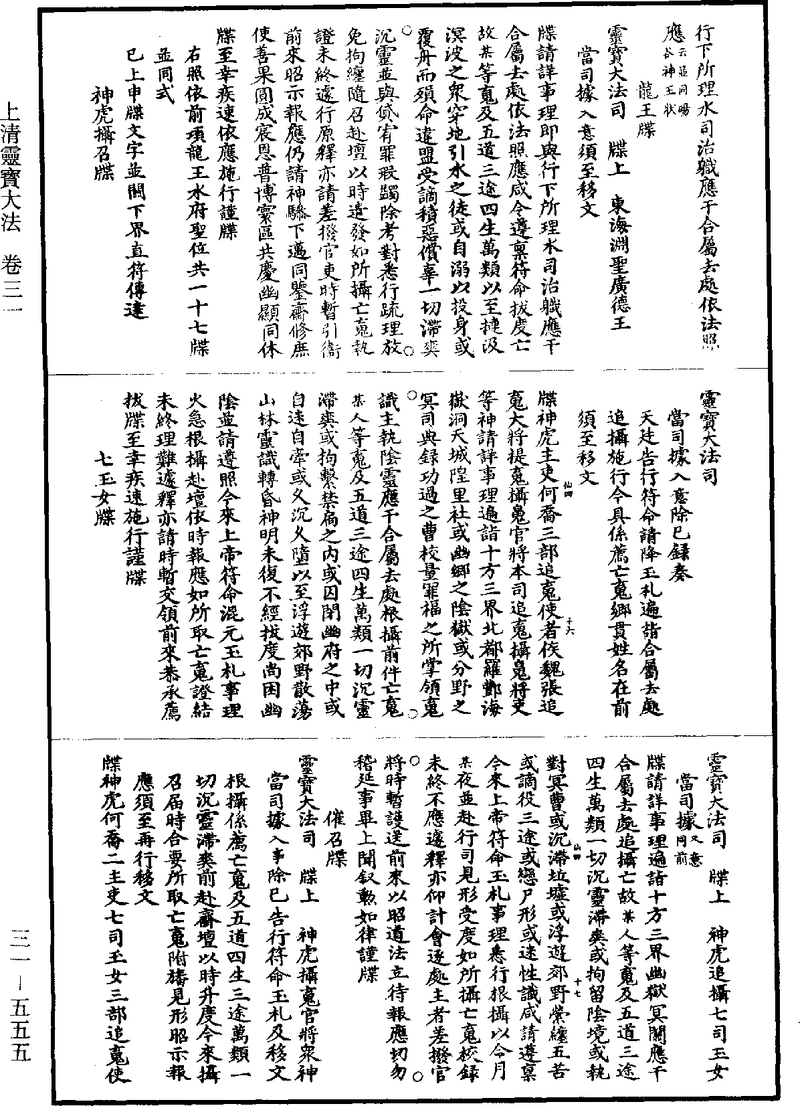 上清靈寶大法　卷三一
三一—五五五
行下所理水司治職應干合屬去處依法照
應云並同暘谷神王狀
龍王牒
靈寶大法司　牒上　東海淵聖廣德王
當司據入意須至移文
牒請詳事理即與行下所理水司治職應干
合屬去處依法照應咸令遵稟符命拔度亡
故某等䰟及五道三途四生萬類以至揵汲
溟波之衆穿地引水之徒或自溺以投身或
覆舟而殞命違盟受謫積惡償辜一切滯爽
沉靈並與貸宥罪瑕蠲除考對悉行疏理放
免拘纏隨召赴壇以時遣發如所攝亡䰟執
證未終遽行原釋亦請差撥官吏時暫引衛
前來昭示報應仍請神驂下邁同鑒齋修庶
使善果圓成宸恩普博寰區共慶幽顯同休
牒至幸疾速依應施行謹牒
右照依前項龍王水府聖位共一十七牒
並同式
已上申牒文字並關下界直符傳達
神虎攝召牒
靈寶大法司
當司據入意除已錄奏
天廷告行符命請降玉札遍詣合屬去處
追攝施行今具係薦亡䰟鄉貫姓名在前
須至移文
牒神虎主吏何喬三部追䰟使者侯魏張追
䰟大將提䰟攝䰟官將本司追䰟攝䰟將吏
等神請詳事理遍詣十方三界北都羅酆海
嶽洞天城隍里社或幽鄉之陰獄或分野之
冥司與錄功過之曹校量罪福之所掌領䰟
識主執陰靈應干合屬去處根攝前件亡䰟
某人等䰟及五道三途四生萬類一切沉靈
滯爽或拘繫禁扃之內或囚閉幽府之中或
自遠自牽或久沉久墮以至浮遊郊野散蕩
山林靈識轉昏神明未復不經拔度尚困幽
陰並請遵照今來上帝符命混元玉札事理
火急根攝赴壇依時報應如所取亡䰟證結
未終理難遽釋亦請時暫交領前來恭承薦
拔牒至幸疾速施行謹牒
七玉女牒
靈寶大法司　牒上　神虎追攝七司玉女
當司據入意同前
牒請詳事理遍詣十方三界幽獄冥關應干
合屬去處追攝亡故某人等䰟及五道三途
四生萬類一切沉靈滯爽或拘留陰境或執
對冥曹或沉滯垃墟或浮遊郊野縈纏五苦
或謫役三途或戀尸形或迷性識咸請遵稟
今來上帝符命玉札事理悉行根攝以今月
某夜並赴行司見形受度如所攝亡䰟校錄
未終不應遽釋亦仰計會逐處主者差撥官
將時暫護送前來以昭道法立待報應切勿
稽延事畢上聞敘勲如律謹牒
催召牒
靈寶大法司　牒上　神虎攝䰟官將衆神
當司據入事除已告行符命玉札及移文
根攝係薦亡䰟及五道四生三途萬類一
切沉靈滯爽前赴齋壇以時升度今來攝
召屆時合要所取亡䰟附旛見形昭示報
應須至再行移文
牒神虎何喬二主吏七司玉女三部追䰟使